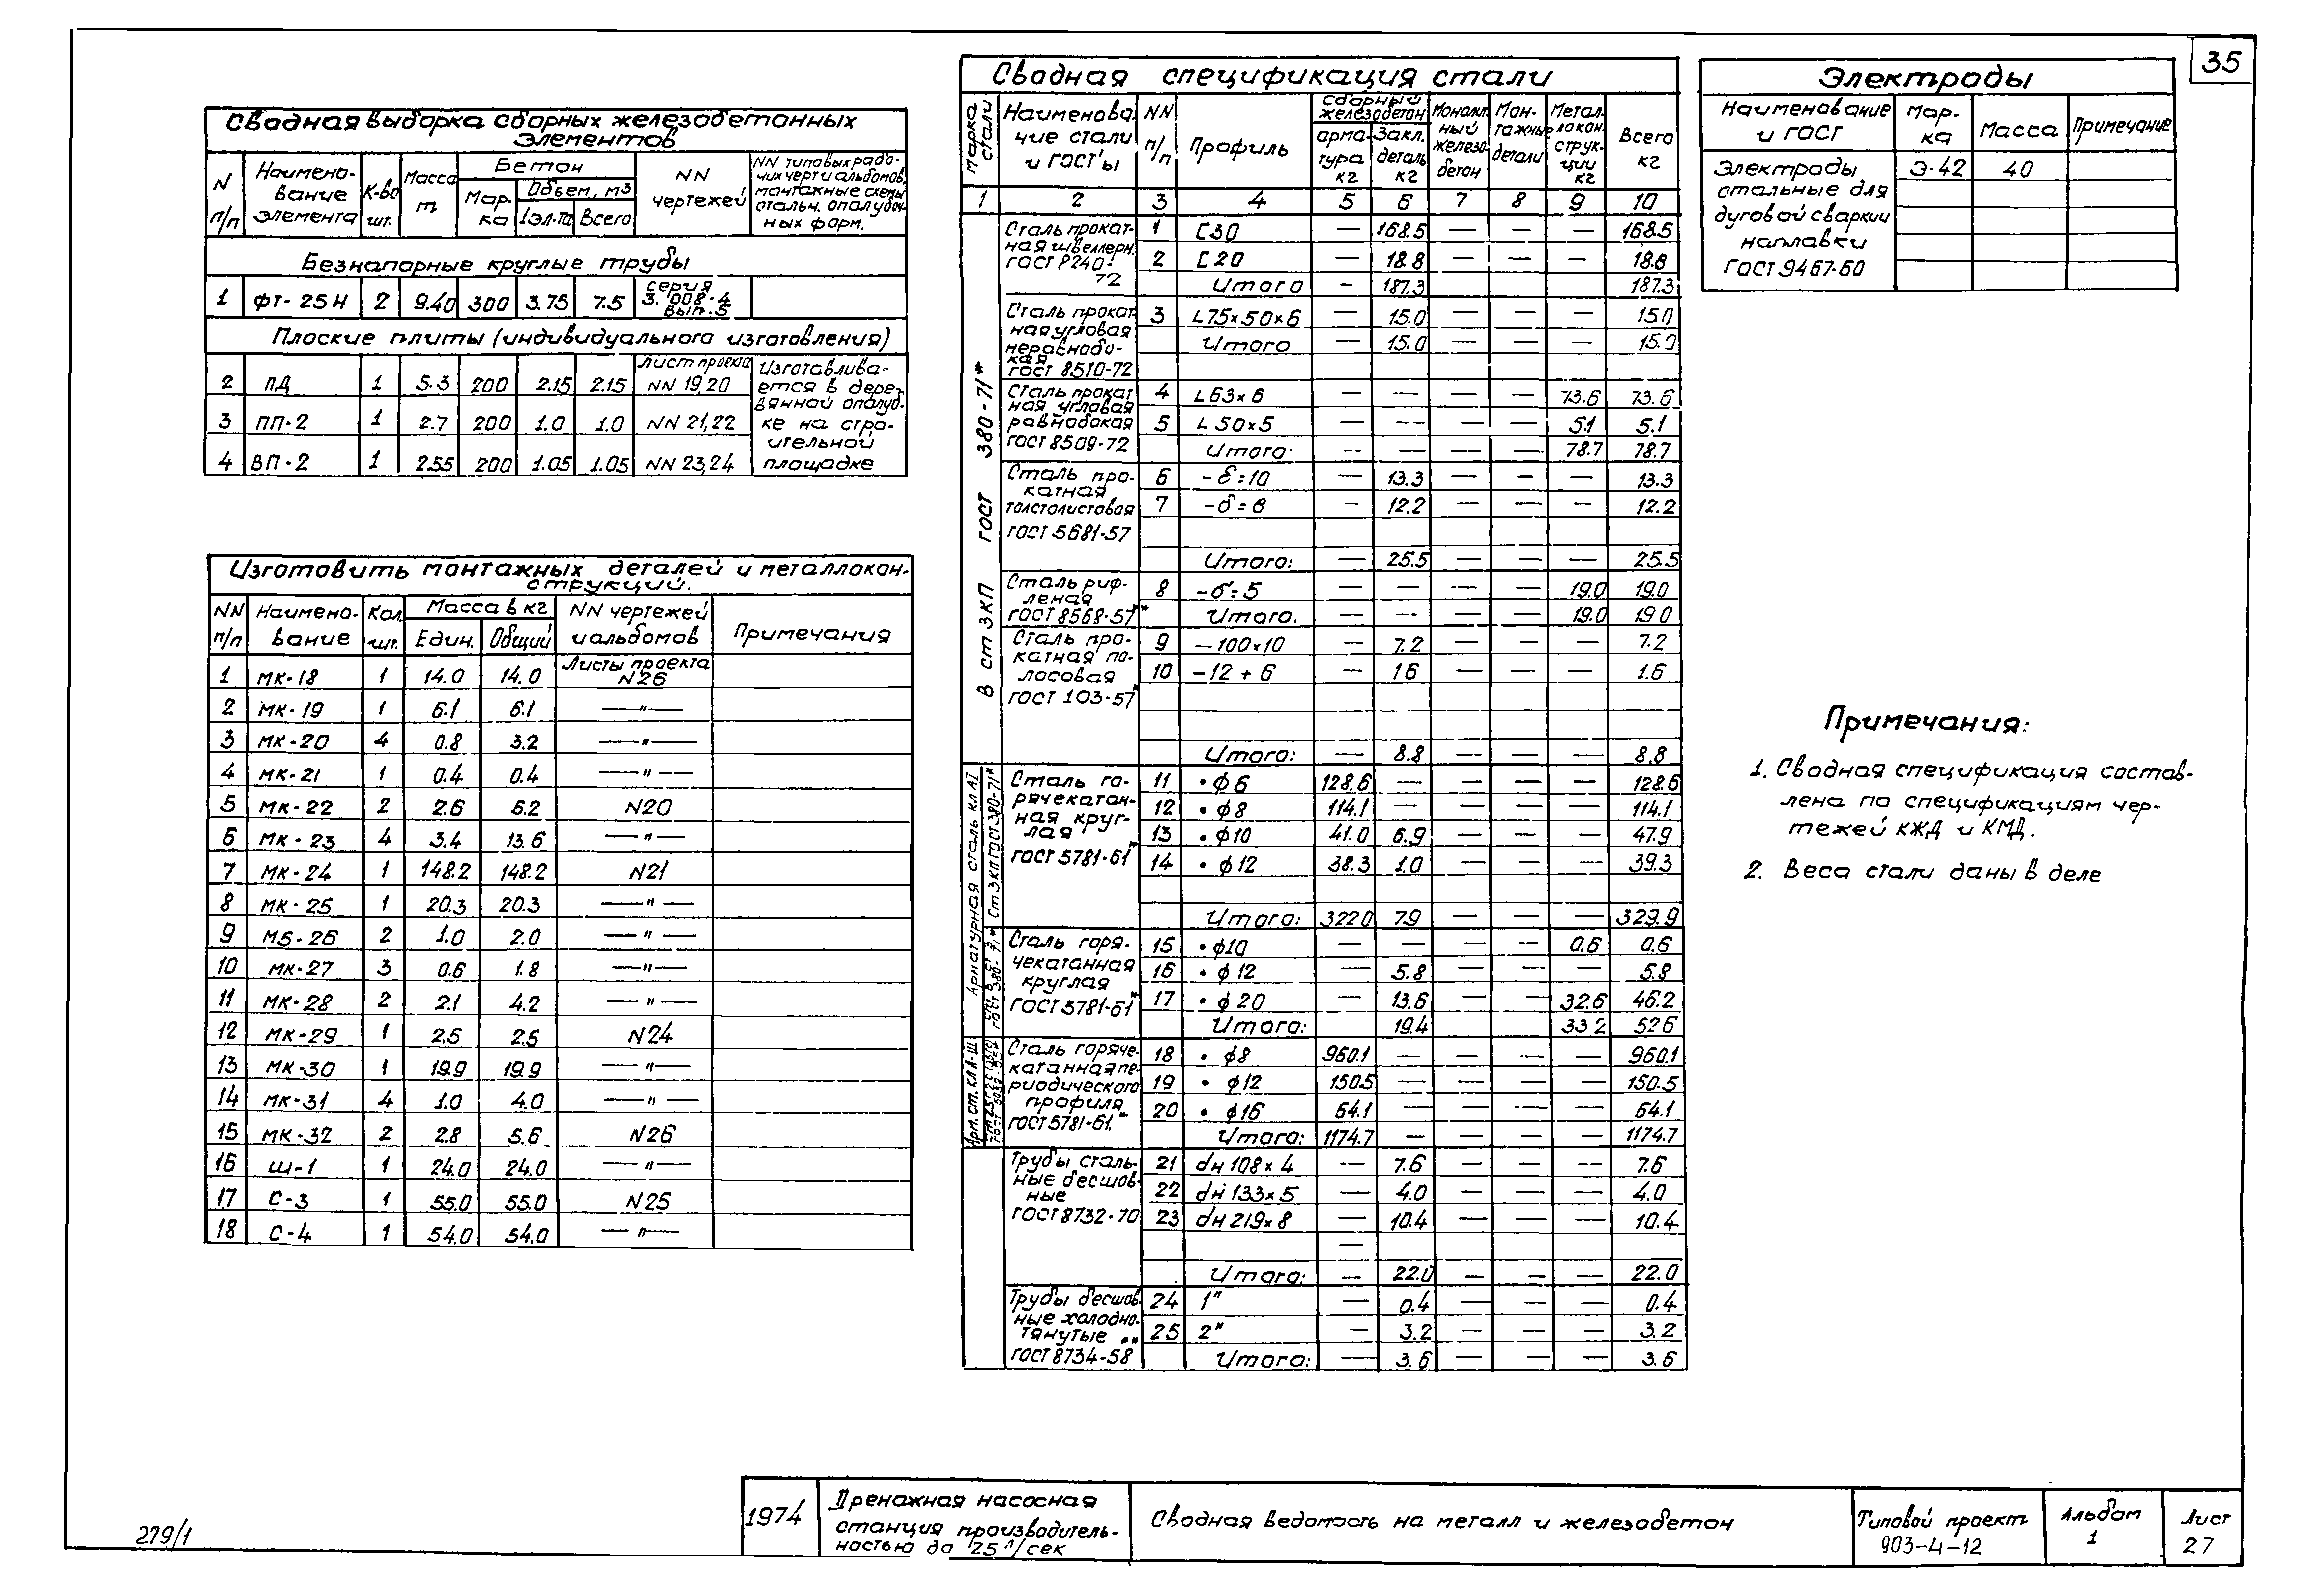 35
Сводная выборка сборных железобетонных
элементов
N п/п | Наименование элемента | К-во шт. | Масса т | Бетон | NN чертежей | NN типовых рабочих черт и альбомов, монтажные схемы стальн. опалубочных форм.
Марка | Объем, м3
1 эл-та | Всего
Безнапорные круглые трубы
1 | ФТ-25Н | 2 | 9.40 | 300 | 3.75 | 7.5 | серия 3.008-4 вып.5
Плоские плиты (индивидуального изготовления)
2 | ПД | 1 | 5.3 | 200 | 2.15 | 2.15 | Лист проекта NN 19,20 | Изготавлива-
3 | ПП-2 | 1 | 2.7 | 200 | 1.0 | 1.0 | NN 21,22 | ется в дере-
4 | ВП-2 | 1 | 2.55 | 200 | 1.05 | 1.05 | NN 23,24 | вянной опалуб-
ке на стро-
ительной
площадке
Изготовить монтажных деталей и металлокон-
струкций.
NN п/п | Наимено-вание | Кол. шт. | Масса в кг | NN чертежей и альбомов | Примечания
Един. | Общий
1 | МК-18 | 1 | 14.0 | 14.0 | Листы проекта N26
2 | МК-19 | 1 | 6.1 | 6.1 | —"—
3 | МК-20 | 4 | 0.8 | 3.2 | —"—
4 | МК-21 | 1 | 0.4 | 0.4 | —"—
5 | МК-22 | 2 | 2.6 | 6.2 | N20
6 | МК-23 | 4 | 3.4 | 13.6 | —"—
7 | МК-24 | 1 | 148.2 | 148.2 | N21
8 | МК-25 | 1 | 20.3 | 20.3 | —"—
9 | М5-26 | 2 | 1.0 | 2.0 | —"—
10 | МК-27 | 3 | 0.6 | 1.8 | —"—
11 | МК-28 | 2 | 2.1 | 4.2 | —"—
12 | МК-29 | 1 | 2.5 | 2.5 | N24
13 | МК-30 | 1 | 19.9 | 19.9 | —"—
14 | МК-31 | 4 | 1.0 | 4.0 | —"—
15 | МК-32 | 2 | 2.8 | 5.6 | N26
16 | Ш-1 | 1 | 24.0 | 24.0 | —"—
17 | С-3 | 1 | 55.0 | 55.0 | N25
18 | С-4 | 1 | 54.0 | 54.0 | —"—
Сводная спецификация стали
Марка стали | Наименова-ние стали и ГОСТ'ы | NN п/п | Профиль | Сборный железобетон | Монолитный железобетон | Монтажные детали | Металлоконструкции кг | Всего кг
арматура кг | Закл. деталь кг
1 | 2 | 3 | 4 | 5 | 6 | 7 | 8 | 9 | 10
В ст 3кп ГОСТ 380-71*
Сталь прокатная швеллерн. ГОСТ 8240-72
1 | С30 | — | 168.5 | — | — | — | 168.5
2 | С20 | — | 18.8 | — | — | — | 18.8
Итого | - | 187.3 | 187.3
Сталь прокатная угловая неравнобокая ГОСТ 8510-72
3 | L75×50×6 | — | 15.0 | — | — | — | 15.0
Итого | — | 15.0 | — | — | — | 15.0
Сталь прокатная угловая равнобокая ГОСТ 8509-72
4 | L63×6 | — | — | — | — | 73.6 | 73.6
5 | L50×5 | — | — | — | — | 5.1 | 5.1
Итого: | — | — | — | — | 78.7 | 78.7
Сталь прокатная толстолистовая ГОСТ 5681-57
6 | -δ=10 | — | 13.3 | — | — | — | 13.3
7 | -δ=8 | — | 12.2 | — | — | — | 12.2
Итого: | — | 25.5 | — | — | — | 25.5
Сталь рифленая ГОСТ 8568-57**
8 | -δ=5 | — | — | — | — | 19.0 | 19.0
Итого. | — | — | — | — | 19.0 | 19 0
Сталь прокатная полосовая ГОСТ 103-57*
9 | —100×10 | — | 7.2 | — | — | — | 7.2
10 | -12+6 | — | 1 6 | — | — | — | 1.6
Итого: | — | 8.8 | — | — | — | 8.8
Арматурная сталь кл АI Ст 3КП ГОСТ 380-71*
Сталь горячекатанная круглая ГОСТ 5781-61*
11 | • ф6 | 128.6 | — | — | — | — | 128.6
12 | • ф8 | 114.1 | — | — | — | — | 114.1
13 | • ф10 | 41.0 | 6.9 | — | — | — | 47.9
14 | • ф12 | 38.3 | 1.0 | — | — | — | 39.3
Итого: | 322 0 | 7.9 | — | — | — | 329.9
Сталь горячекатанная круглая ГОСТ 5781-61*
15 | • ф10 | — | — | — | — | 0.6 | 0.6
16 | • ф12 | — | 5.8 | — | — | — | 5.8
17 | • ф20 | — | 13.6 | — | — | 32.6 | 46.2
Итого: | 19.4 | 33 2 | 52 6
Арм. ст. кл А-Ш
Сталь горячекатанная периодического профиля ГОСТ 5781-61*
18 | • ф8 | 960.1 | — | — | — | — | 960.1
19 | • ф12 | 150.5 | — | — | — | — | 150.5
20 | • ф16 | 64.1 | — | — | — | — | 64.1
Итого: | 1174.7 | — | — | — | — | 1174.7
Трубы стальные бесшовные ГОСТ 8732-70
21 | dн 108×4 | — | 7.6 | — | — | — | 7.6
22 | dн 133×5 | — | 4.0 | — | — | — | 4.0
23 | dн 219×8 | — | 10.4 | — | — | — | 10.4
—
Итого: | — | 22.0 | — | — | — | 22.0
Трубы бесшовные холодно-тянутые ** ГОСТ 8734-58
24 | 1" | — | 0.4 | — | — | — | 0.4
25 | 2" | — | 3.2 | — | — | — | 3.2
Итого: | — | 3.6 | — | — | — | 3.6
Электроды
Наименование и ГОСТ | Мар-ка | Масса | Примечание
Электроды | Э-42 | 40
стальные для
дуговой сварки
наплавки
ГОСТ 9467-60
Примечания:
1. Сводная спецификация состав-
лена по спецификациям чер-
тежей КЖД и КМД.
2. Веса стали даны в деле
279/1
1974
Дренажная насосная
станция производитель-
ностью до 25 л/сек
Сводная ведомость на металл и железобетон
Типовой проект
903-4-12
Альбом
1
Лист
27